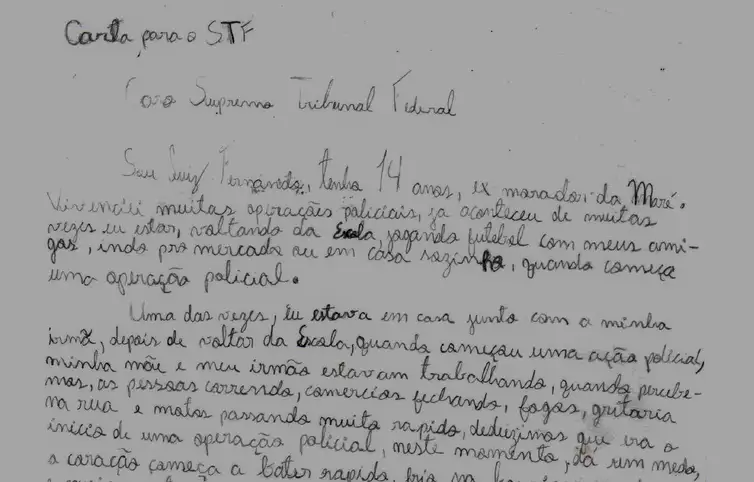 Carta para o STF
Caro Supremo Tribunal Federal
Sou Luiz Fernando, tenho 14 anos, ex morador da Maré.
Vivenciei muitas operações policiais, ja aconteceu de muitas
vezes eu estar, voltando da Escola, jogando futebol com meus ami-
gos, indo pro mercado ou em casa sozinho, quando começa
uma operação policial.
Uma das vezes, eu estava em casa junto com a minha
irmã, depois de voltar da Escola, quando começou uma ação policial,
minha mãe e meu irmão estavam trabalhando, quando percebe-
mos, as pessoas correndo, comercios fechando, fogos, gritaria
na rua e motos passando muito rapido, deduzimos que era o
inicio de uma operação policial, neste momento, dá um medo,
o coração começa a bater rapido, frio na